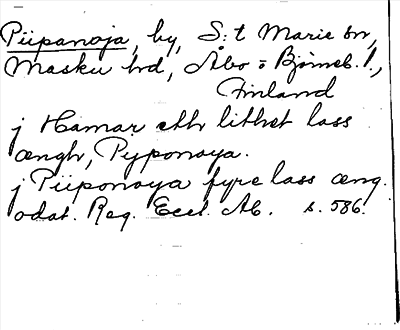 Piipanoja, by, S:t Marie sn,
Masku hd, Åbo o Björneb. l.,
Finland
j Hamar eth lithet lass
ængh, Pyponoya.
j Piiponoya fyre lass æng.
odat. Reg. Eccl. Ab. s. 586.